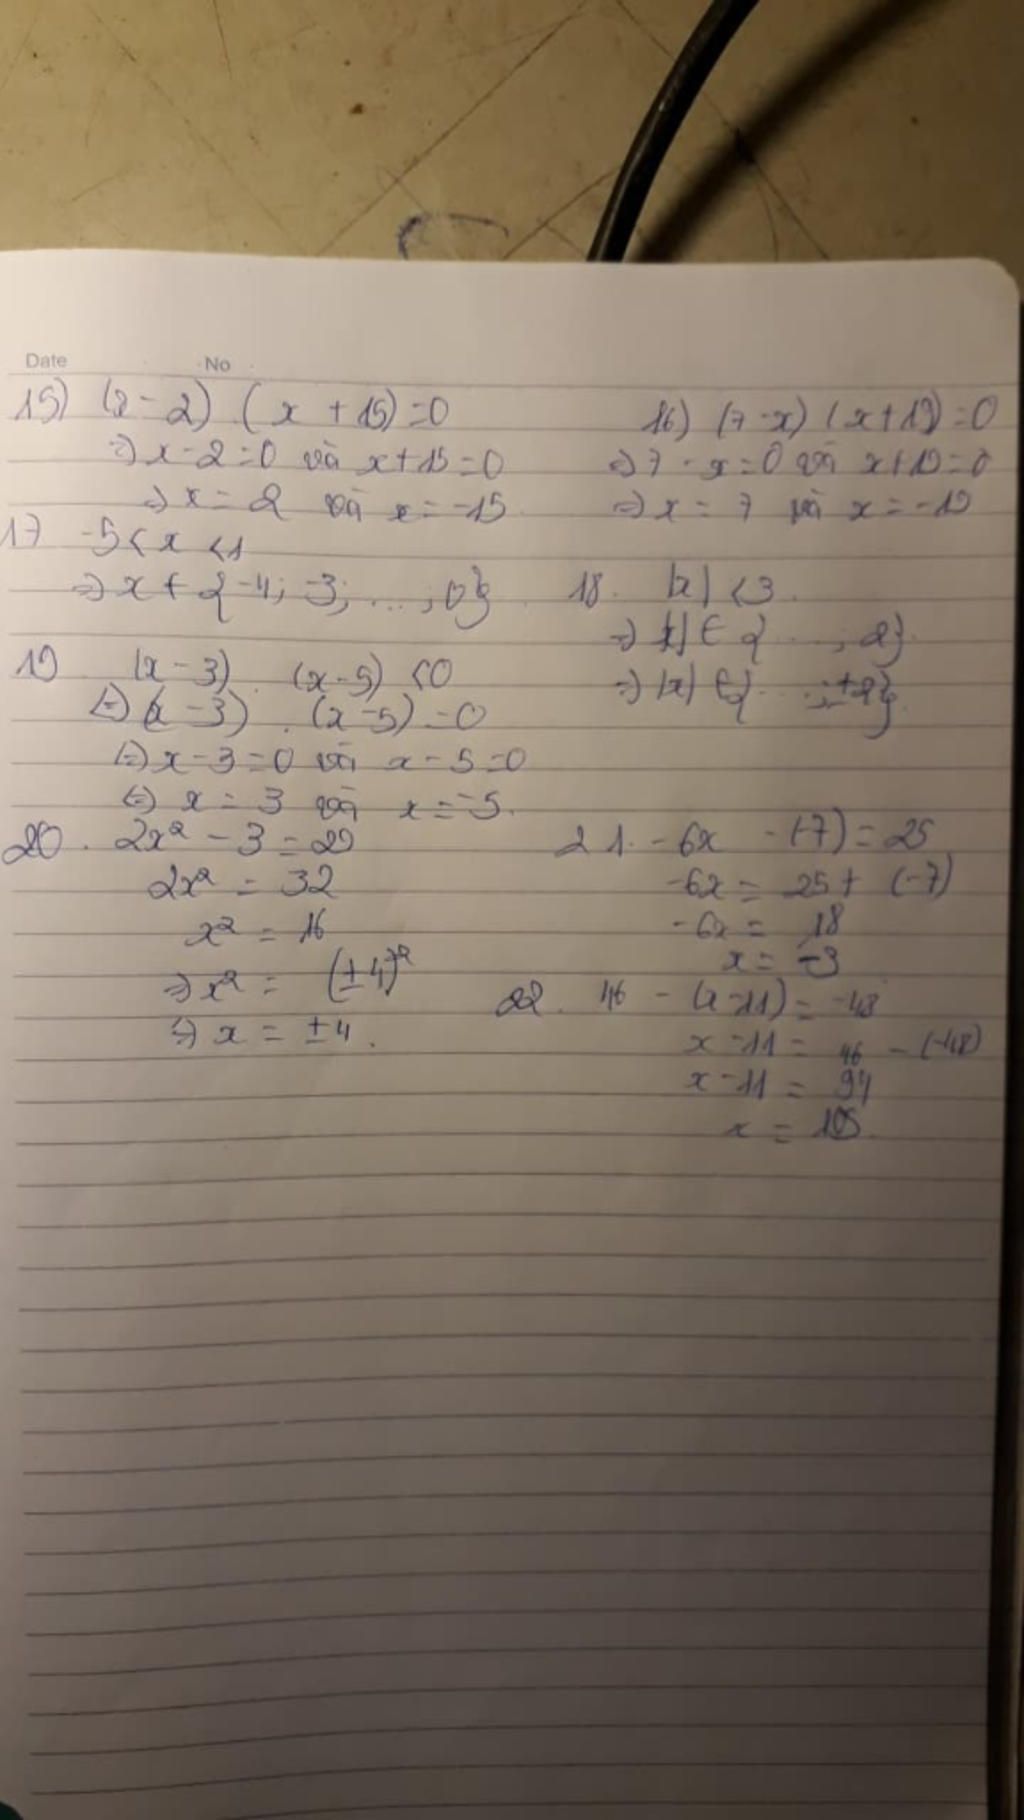 Date No
15) (x-2) . (x + 15) = 0
=> x-2=0 và x+15=0
=> x=2 và x=-15
16) (7-x) (x+19)=0
=> 7-x=0 và x+19=0
=> x=7 và x=-19
17 -5<x<1
=> x ∈ {-4; -3; ...; 0}
18. |x| <3
=> |x| ∈ { ... ; 2}
=> |x| ∈ { ... ; ±2}
19 (x-3) . (x-5) <0
<=> (x-3) . (x-5) =0
<=> x-3=0 và x-5=0
<=> x=3 và x=-5.
20. 2x² - 3 = 29
2x² = 32
x² = 16
=> x² = (±4)²
=> x = ±4.
21. -6x - (-7) = 25
-6x = 25 + (-7)
-6x = 18
x = -3
22. 46 - (x-11) = -48
x-11 = 46 - (-48)
x-11 = 94
x = 105.